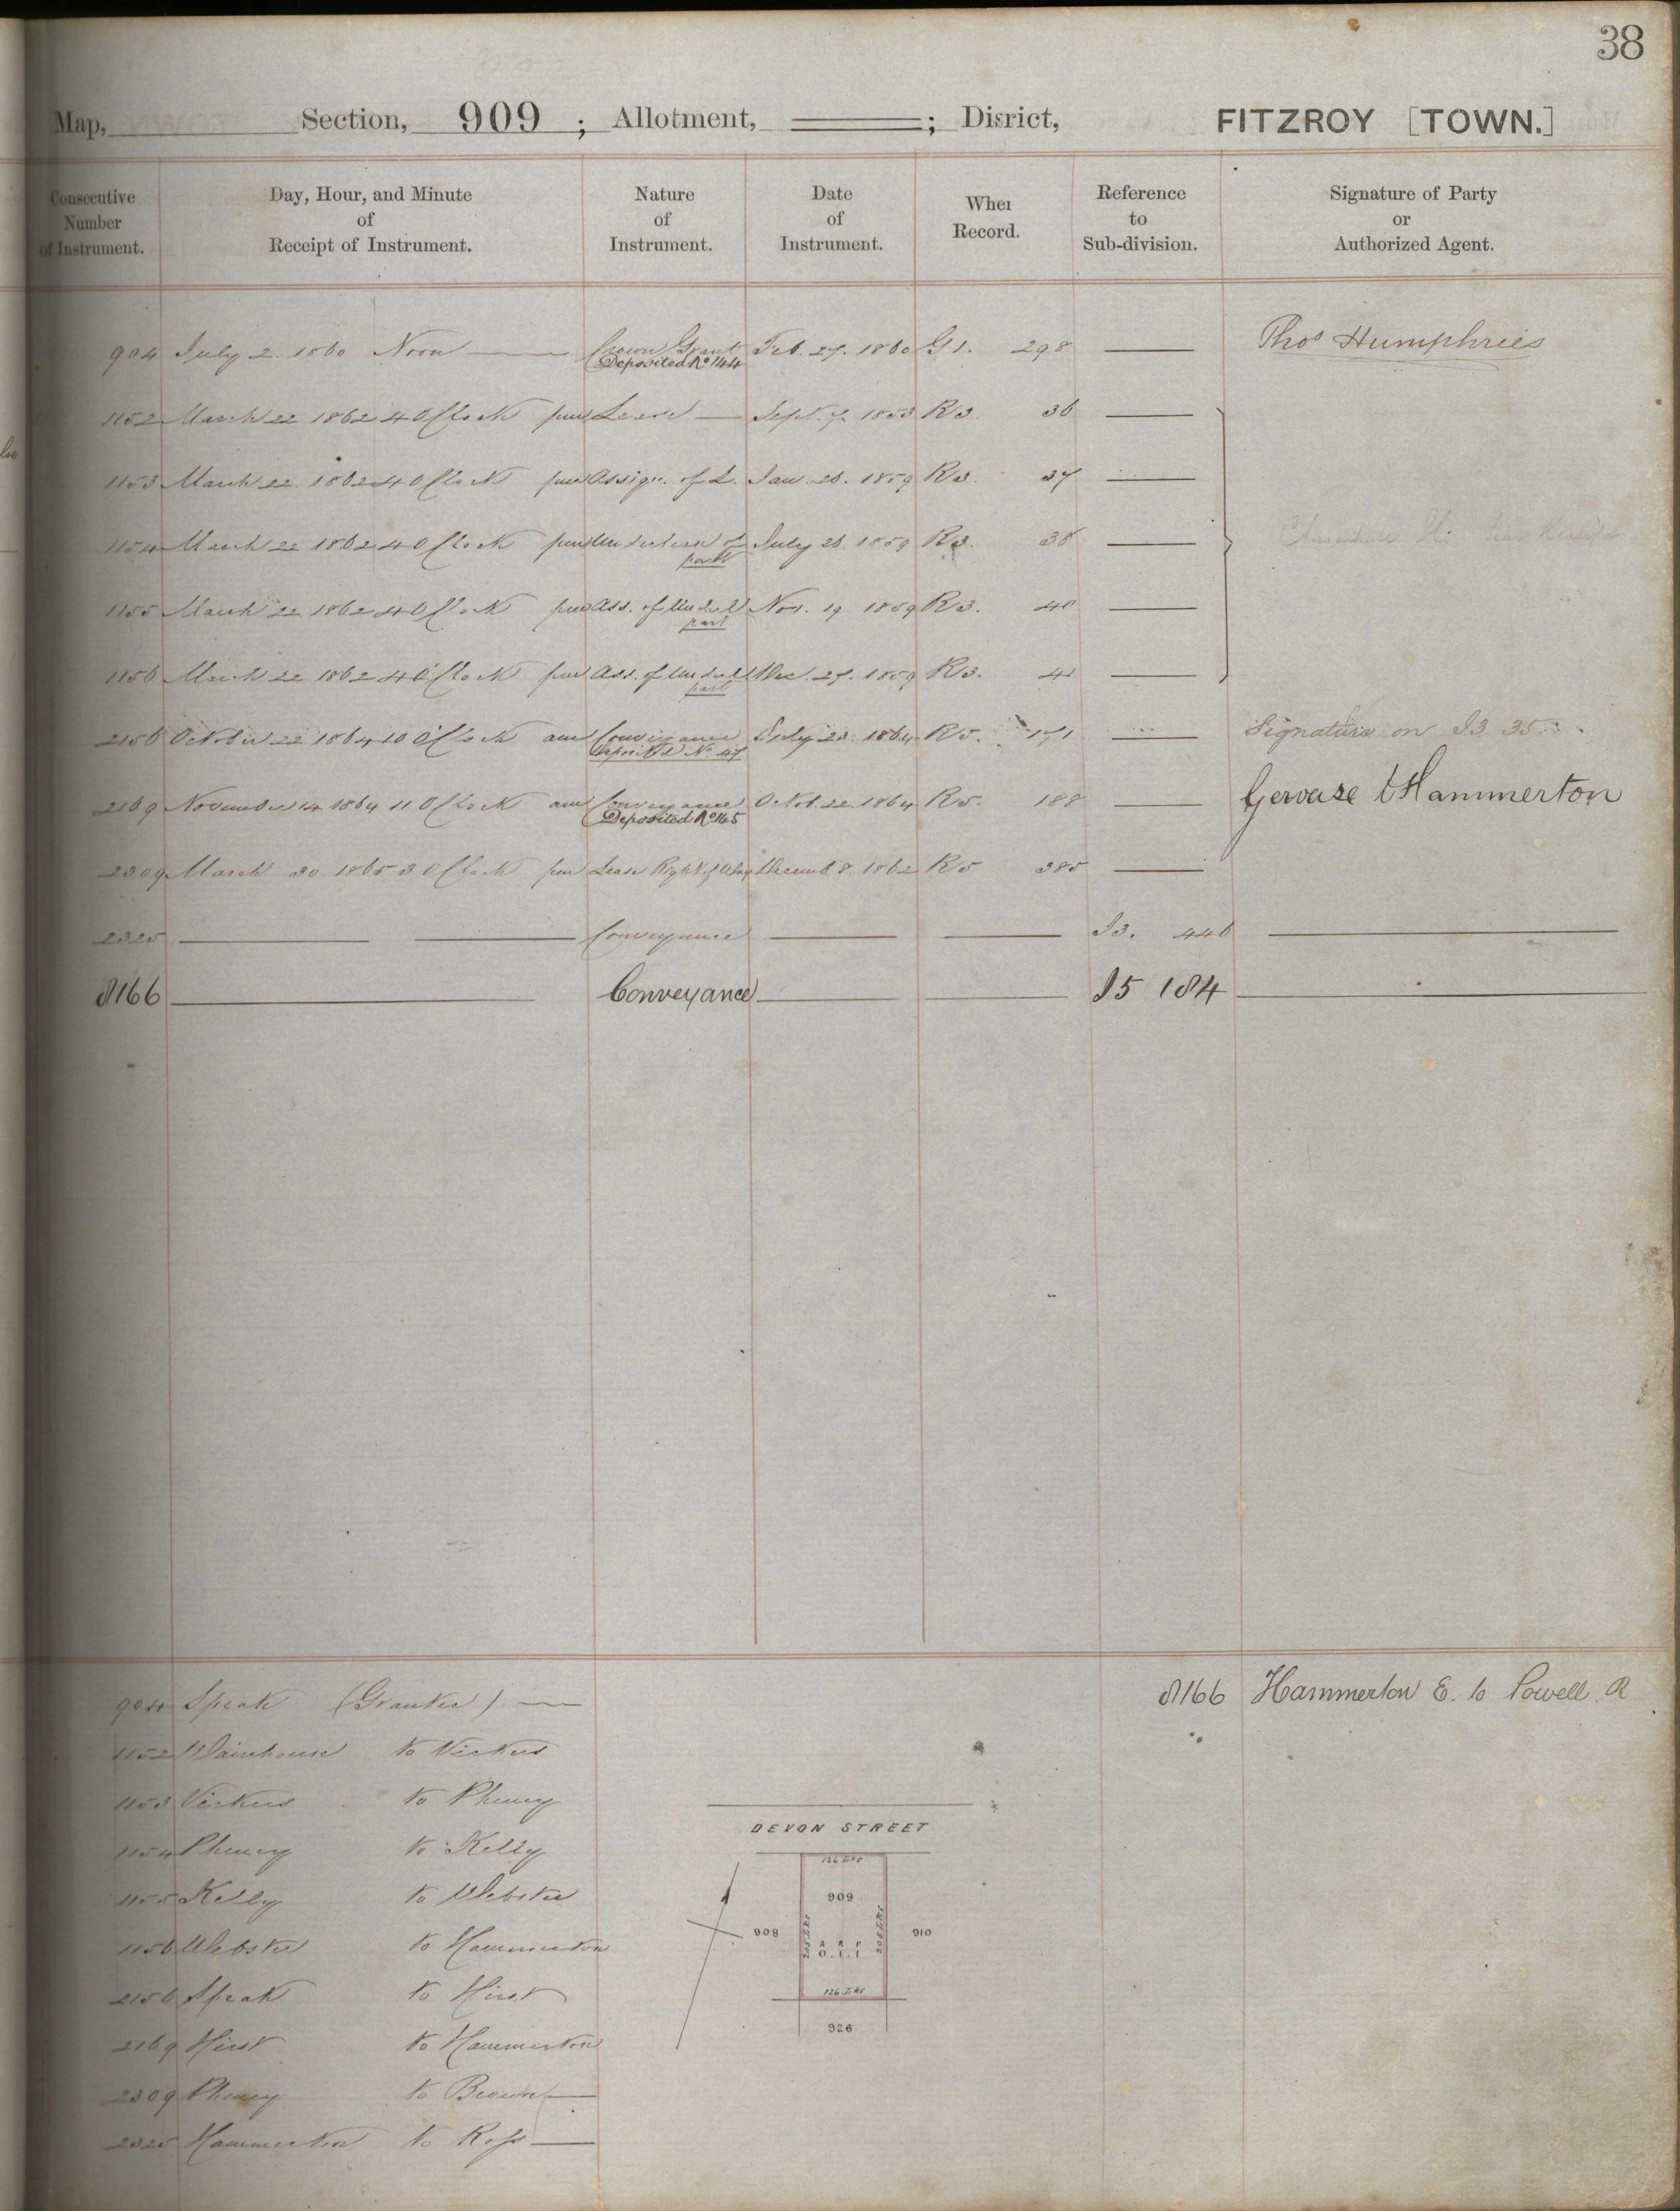 38
Map, Section, 909 ; Allotment, ; Disrict, FITZROY [TOWN.]
Consecutive Number of Instrument.
Day, Hour, and Minute of Receipt of Instrument.
Nature of Instrument.
Date of Instrument.
Wher Record.
Reference to Sub-division.
Signature of Party or Authorized Agent.
904 July 2. 1860 Noon Crown Grant Feb. 27. 1860 G 1. 298 Thos Humphries
Deposited No 144
1152 March 22 1862 4 O Clock pm Lease Sept. 7. 1853 R 3. 36
1153 March 22. 1862 4 O Clock pm Assign. of L. Jan. 26. 1859 R 3. 37
1154 March 22 1862 4 O Clock pm Underlease of July 26. 1859 R 3. 38
part
1155 March 22 1862 4 O Clock pm Ass. of Und. Nov. 19 1859 R 3. 40
part
1156 March 22 1862 4 O Clock pm Ass. of Und. Dec. 27. 1859 R 3. 41
part
2156 October 22 1864 10 O Clock am Conveyance July 23. 1864 R 5. 171 Signature on I3 35
Deposited No 47
2169 November 14 1864 11 O Clock am Conveyance Octob. 22. 1864 R 5. 188 Gervase Hammerton
Deposited No 145
2309 March 30 1865 3 O Clock pm Lease Right of Way Decemb. 8. 1862 R 5 385
2325 Conveyance I 3. 446
8166 Conveyance I 5 184
904 Speak (Grantee) 8166 Hammerton E. to Powell. R
1152 Wainhouse to Vickers
1153 Vickers to Pheney
1154 Pheney to Kelly
1155 Kelly to Webster
1156 Webster to Hammerton
2156 Speak to Hirst
2169 Hirst to Hammerton
2309 Pheney to Brown
2325 Hammerton to Ross
DEVON STREET
126 Lks
909
908
910
205 Lks
A R P
0 . 1 . 1
126 Lks
926